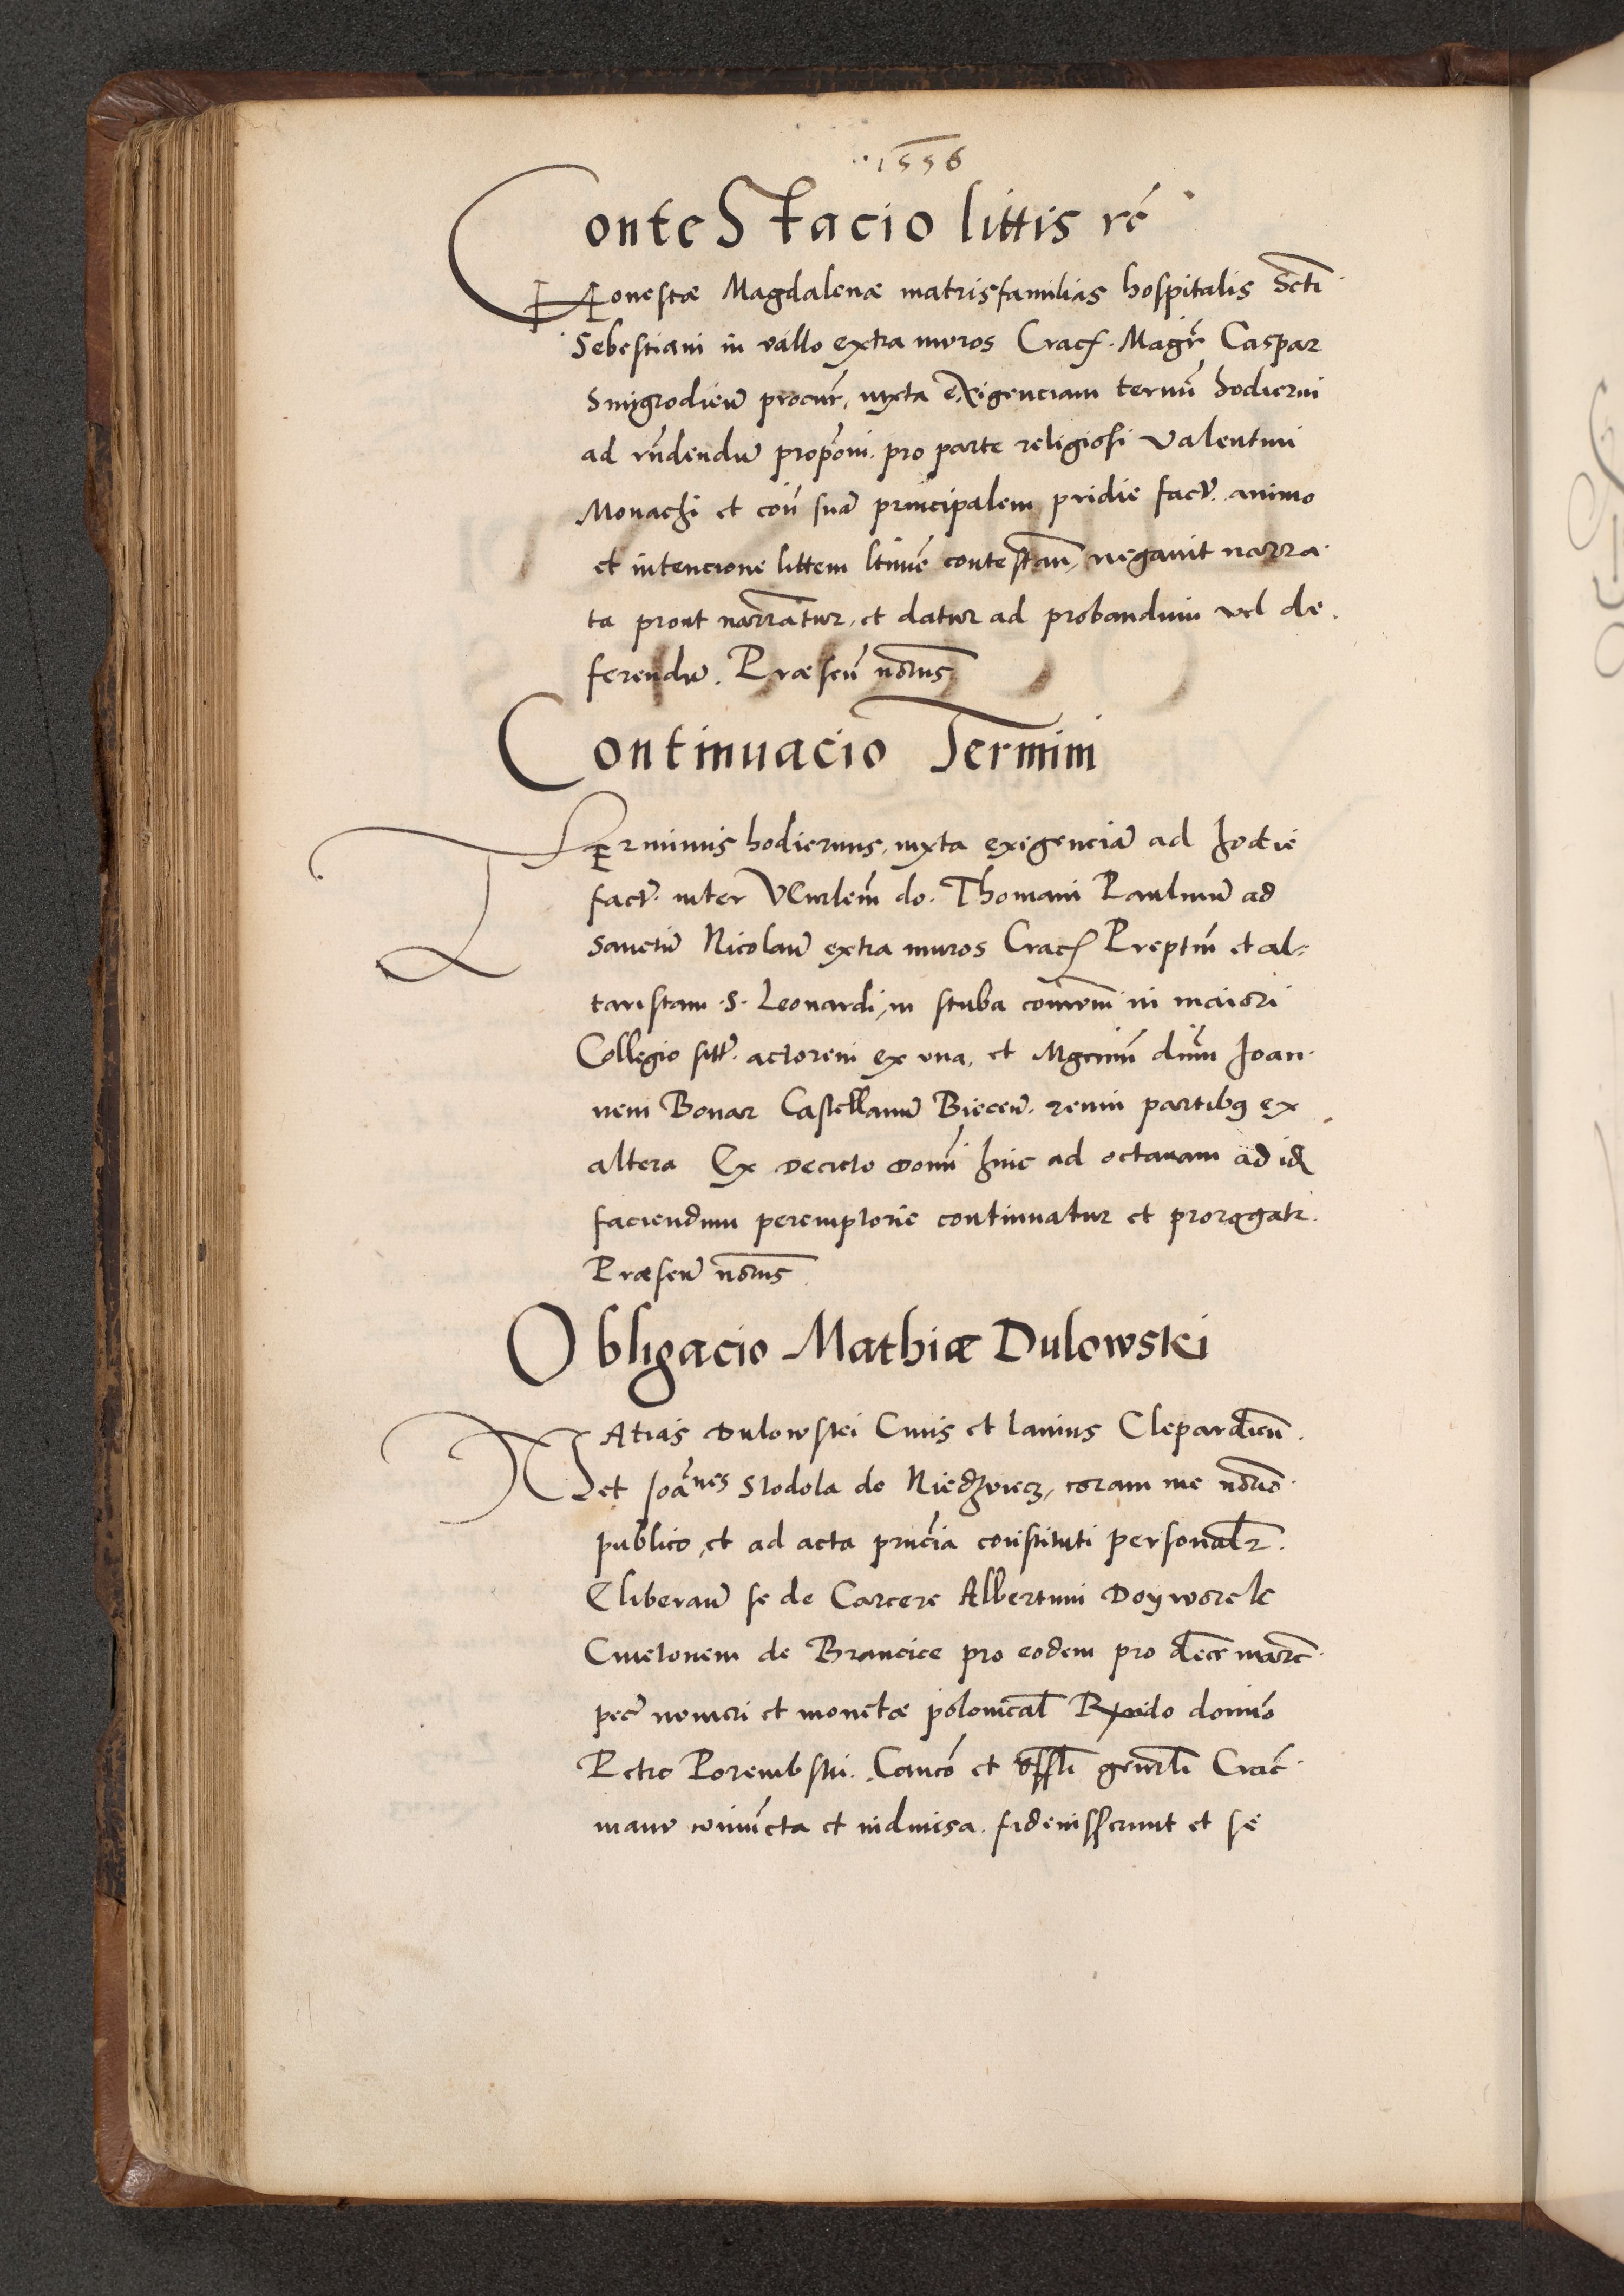 1556
Contestacio littis re
Honestæ Magdalenæ matrisfamilias hospitalis Scti
Sebestiani in vallo extra muros Crac. Magr Caspar
Smigrodien procur, iuxta exigenciam termi hodierni
ad rndendu proponi. pro parte religiosi Valentini
Monachi et con sua principalem pridie fact. animo
et intencione littem contestan, negavit narra
ta prout narrantur, et datur ad probandum vel de
ferendu. Præsen notus
Continuacio Termini
Terminus hodiernus, iuxta exigencia ad hodie
fact. inter do. Thomam Paulinu ad
sanctu Nicolau extra muros Crac Preptm et al-
taristam S. Leonardi, in stuba comuni in maiori
Collegio sitt. actorem ex una, et Mgcum dnum Joan
nem Bonar Castellanu Biecen. reum partibus ex
altera Ex decreto domi hinc ad octavam ad id
faciendum peremptorie continuatur et prorogatr.
Præsen notus
Obligacio Mathiæ Dulowski
Matias Dulowski Civis et lanius Clepardien.
et Joannes Stodola de Niedzwiecz, coram me notrio
publico, et ad acta prncia constituti personalr.
Eliberan se de Carcere Albertum Doyworek
Cmetonem de Brancice pro eodem pro decem marc
pec numeri et monetæ polonical Rndo domino
Petro Porembski. Canco et offli genrli Crac
manu coniuncta et indivisa. fideiusserunt et se